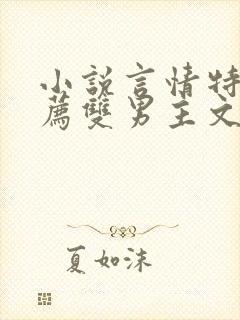 小説言情特
薦雙男主文
夏如沫